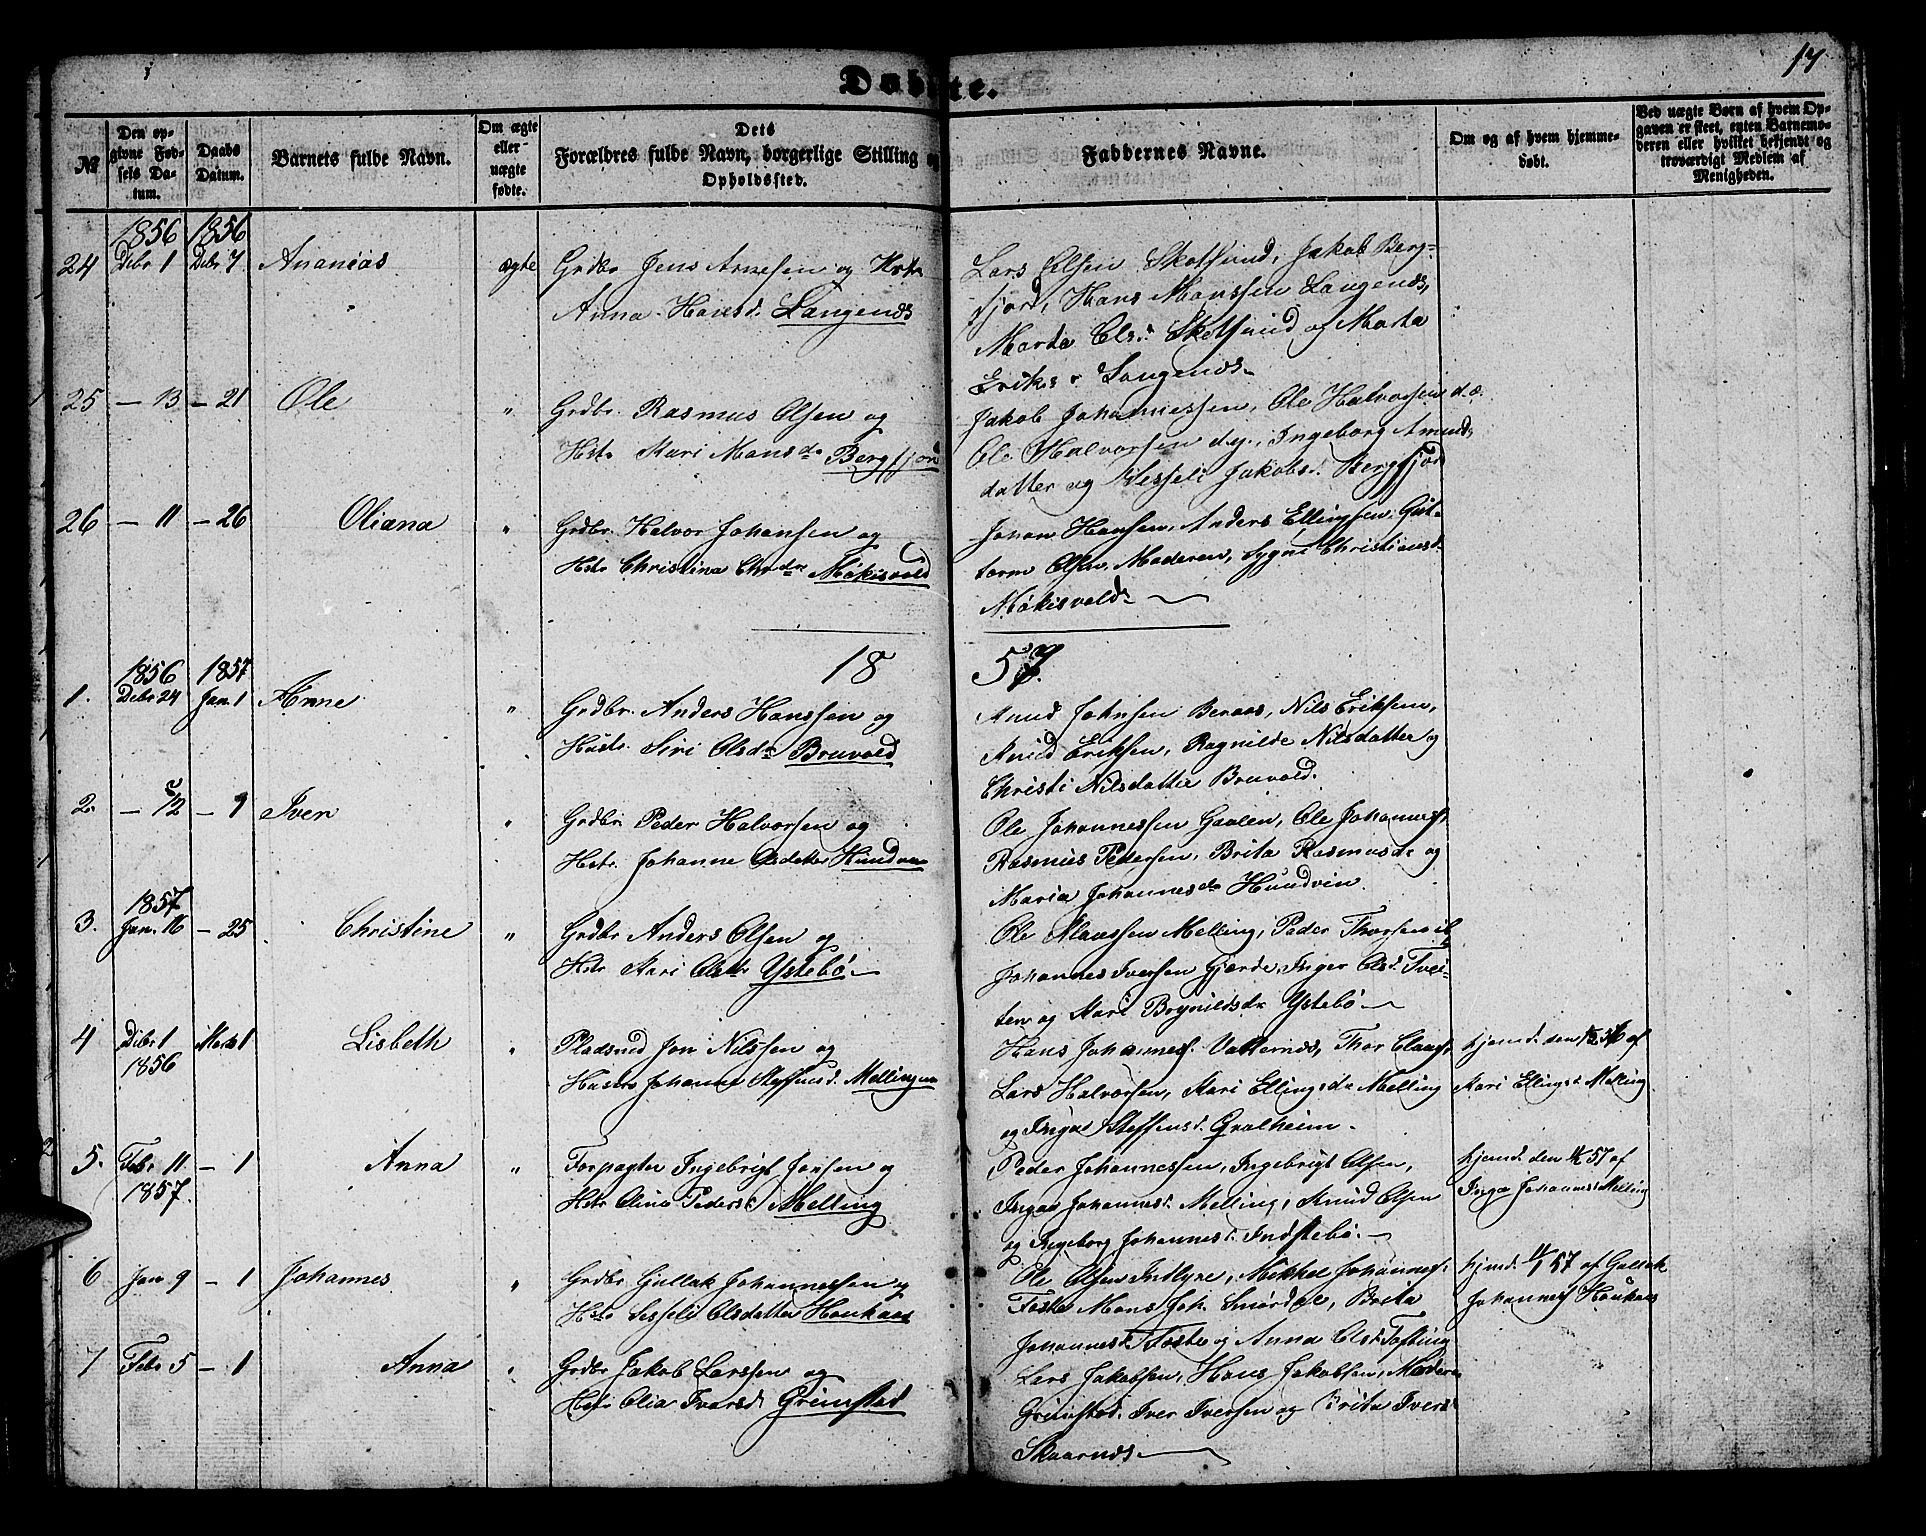 17
Døbte.
№
Den opgivne Fødsels Datum.
Daabs Datum.
Barnets fulde Navn.
Om ægte eller uægte fødte.
Dets Forældres fulde Navn, borgerlige Stilling og Opholdssted.
Faddernes Navne.
Om og af hvem hjemmedøbt.
Ved uægte Børn af hvem Opgaven er skeet, enten Barnemoderen eller hvilket bekjendt og troværdigt Medlem af Menigheden.
1856 1856
24 Dcbr 1 Dcbr 7 Ananias ægte Grdbr Jens Arnesen og Hstr
Anna Hansd. Langenæs
Lars Olsen Skotsund, Jakob Berg-
fjord, Hans Monssen Langenæs,
Marta Ols. Skotsund og Marta
Eriks Langenæs
25 – 13 – 21 Ole " Grdbr. Rasmus Olsen og
Hstr Kari Monsdr Bergfjord
Jakob Johannessen, Ole Halvorsen d.æ.
Ole Halvorsen d.y., Ingeborg Amunds
datter og Sesseli Jakobsd. Bergfjord
26 – 11 – 26 Oliana " Grdbr. Halvor Johansen og
Hstr Christina Chrdr Møkisvold
Johan Hansen, Anders Ellingsen, Gut-
torm Olsen, Moderen, Sygni Christiansd.
Møkisvold
18 57.
1856 1857
1. Dcbr 24 Jan. 1 Anne " Grdbr. Anders Hanssen og
Hustr. Siri Olsdr Bruvold
Knud Johnsen Beraas, Nils Eriksen,
Knud Eriksen, Ragnilde Nilsdatter og
Christi Nilsdatter Bruvold.
2. – 12 – 1 Iver " Grdbr. Peder Halvorsen og
Hstr. Johanne Olsdatter Hundven
Ole Johannessen Gaulen, Ole Johannesf.
Rasmus Pedersen, Brita Rasmusdr og
Maria Johannesdr Hundvin.
1857
3. Jan. 16 – 25 Christine " Grdbr Anders Olsen og
Hstr Kari Olsdr Ystebø
Ole Klaussen Melling, Peder Thorsen ib.
Johannes Iversen Gjærde, Inger Olsd. Tvei-
ten og Kari Brynildsdr Ystebø
4 Dcbr 1 Marts 1 Lisbeth " Pladsmd Jon Nilssen og
1856
Hustr Johanne Steffensd. Mellingen
Hans Johannesf. Vatternæs, Thor Claasf.
Lars Halvorsen, Kari Ellingsdr Melling
og Inga Steffensd. Gralheim.
hjemd. den 56 af
Kari Ellingsd. Melling
5. Febr 11 – 1 Anna " Forpagter Ingebrigt Jonsen og
1857.
Hstr Olina Pedersd. Melling
Peder Johannessen, Ingebrigt Olsen,
Inga Johannesd. Melling, Knud Olsen
og Ingeborg Johannesd. Indstebø.
hjemd. den 57 af
Inga Johannesd. Melling
6 Jan 9 – 1 Johannes " Grdbr Gullak Johannessen og
Hstr Sesseli Olsdatter Houkaas
Ole Olsen Indlyre, Mikkel Johannesf.
Foste Mons Joh. Smørdal, Brita
Johannesd. Foste og Anna Olsd. Tofting
hjemd. 57 af Gullak
Johannesf Houkaas
7 Febr 5 – 1 Anna " Grdbr Jakob Larssen og
Hstr Olia Ivarsd. Grimstad
Lars Jakobsen, Hans Jakobsen, Moderen
Grimstad, Iver Iversen og Brita Ivers
Skaarnæs